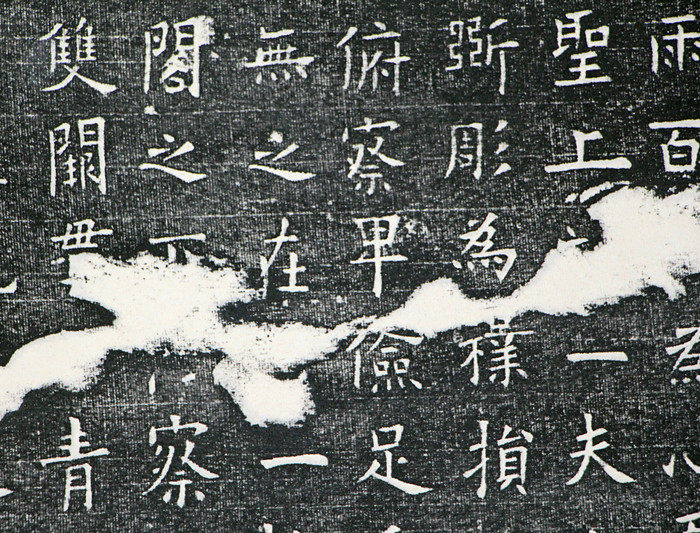 雨百為心
聖上一夫
斲彫為樸損
俯察卑儉足
無之在一
閣之察
雙闕青